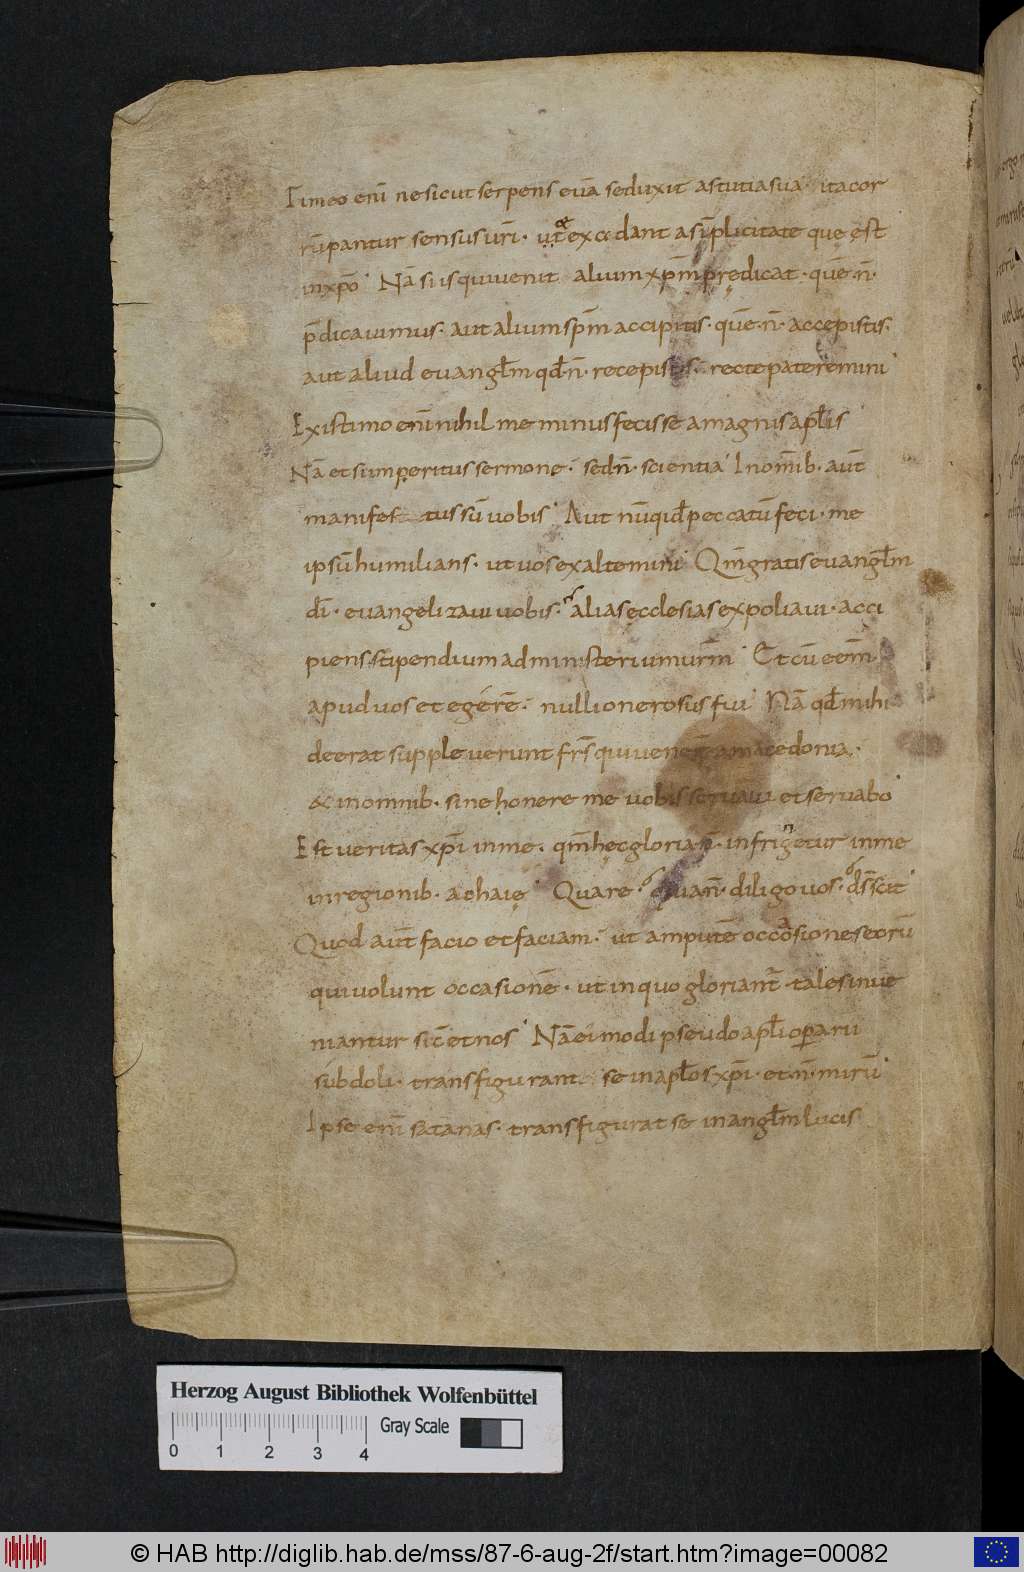 Timeo enī ne sicut serpens euā seduxit astutia sua· ita cor
rūpantur sensus ur̄i· ut & excidant a sīplicitate quę est
in xp̄o· Nā si is qui uenit alium xp̄m prędicat· quē n̄·
p̄dicauimus· aut alium sp̄m accipitis· quē n̄· accepistis·
aut aliud euangl̄m qd̄ n̄· recepistis· recte pateremini·
Existimo enī nihil me minus fecisse a magnis apl̄is
Nā et si imperitus sermone· sed n̄· scientia· In om̄ib· aut̄
manifestatus sū uobis· Aut nūqid peccatū feci· me
ipsū humilians· ut uos exaltemini· Qm̄ gratis euangl̄m
dī· euangelizaui uobis· alias ecclesias expoliaui· acci
piens stipendium ad ministerium ur̄m· Et cū eēm
apud uos et egerē· nulli onerosus fui· Nā qd̄ mihi
deerat suppleuerunt fr̄s qui uener̄ a macedonia·
& in omnib· sine honere me uobis seruaui et seruabo·
Est ueritas xp̄i in me· qm̄ hęc gloria n̄· infringetur in me
in regionib· achaię· Quare· quia n̄· diligo uos· d̄s scit·
Quod aut̄ facio et faciam· ut amputē occasione eorū
qui uolunt occasionē· ut in quo gloriant̄· tales inue
niantur sic̄ et nos· Nā eimodi pseudoapl̄i operarii
subdoli· transfigurant se in apl̄os xp̄i· et n̄· mirū·
Ipse enī satanas· transfigurat se in angl̄m lucis
Herzog August Bibliothek Wolfenbüttel
0 1 2 3 4 Gray Scale
© HAB http://diglib.hab.de/mss/87-6-aug-2f/start.htm?image=00082